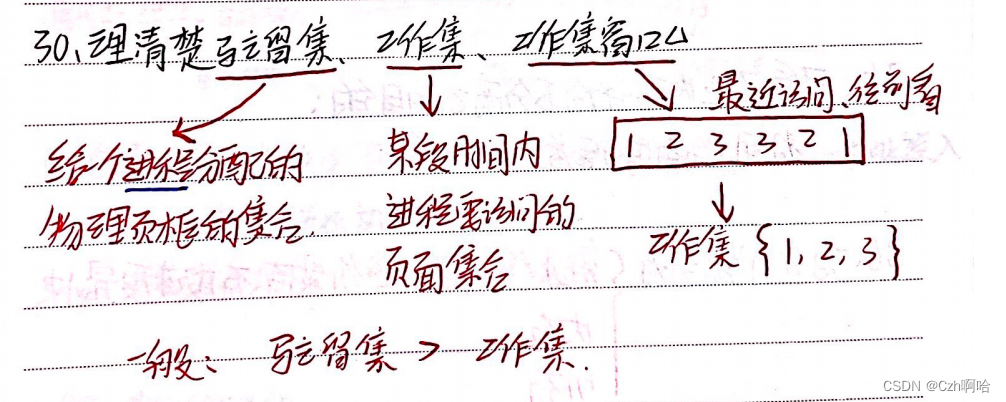 30、理清楚驻留集、工作集、工作集窗口△
最近访问、往前看
给个进程分配的
物理页框的集合.
某段时间内
进程要访问的
页面集合
1 2 3 3 2 1
工作集 {1, 2, 3}
一般: 驻留集 > 工作集.
CSDN @Czh啊哈